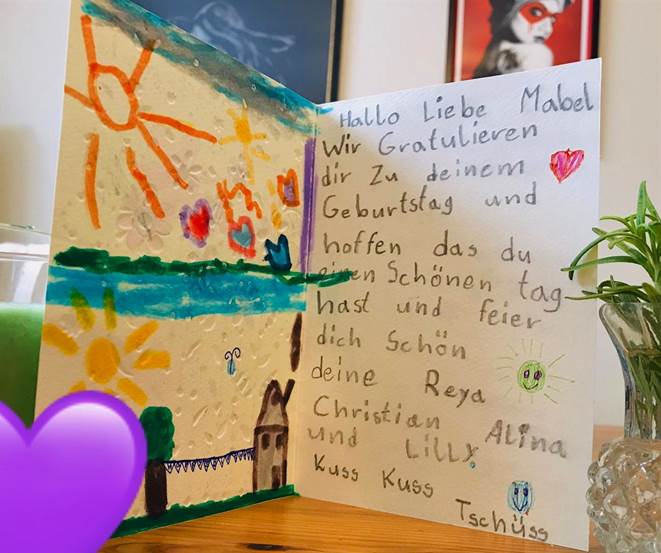 Hallo Liebe Mabel
Wir Gratulieren
dir Zu deinem
Geburtstag und
hoffen das du
einen Schönen tag
hast und feier
dich Schön
deine Reya
Christian Alina
und Lilly.
Kuss Kuss
Tschüss